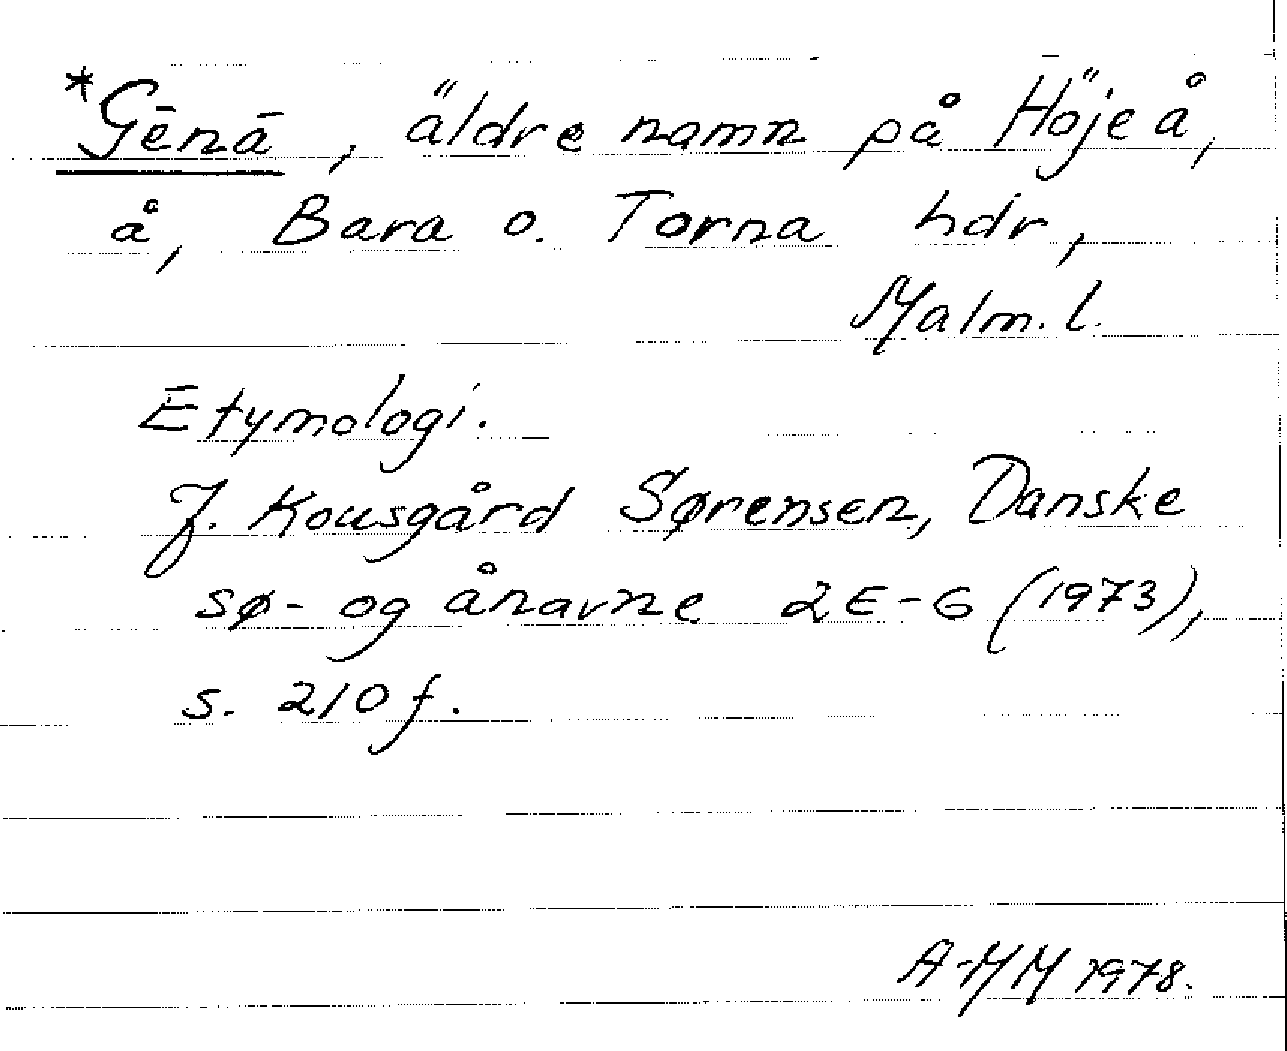 *Gēnā, äldre namn på Höje å,
å, Bara o. Torna hdr,
Malm. l.
Etymologi.
J. Kousgård Sørensen, Danske
sø- og ånavne 2 E-G (1973),
s. 210 f.
A-MM 1978.